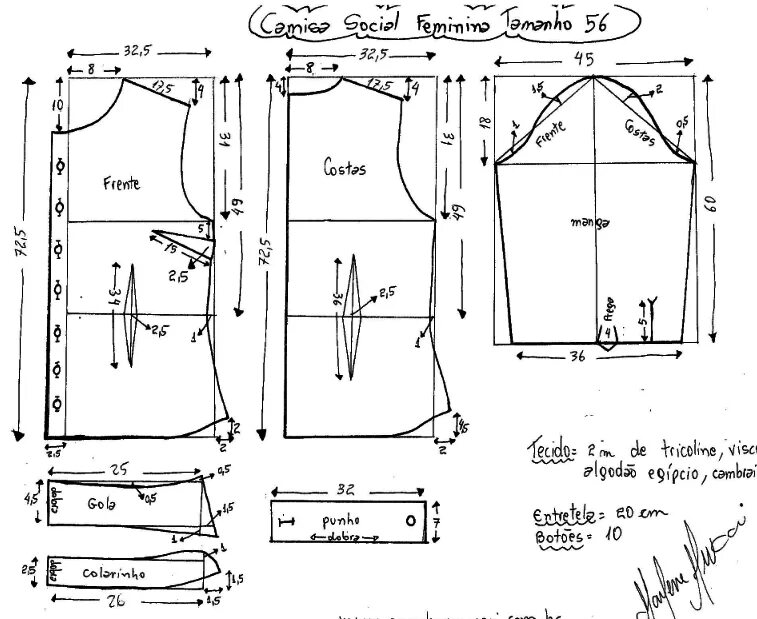 Camisa Social Feminina Tamanho 56
32,5
8
17,5
4
10
31
49
72,5
Frente
5
15
2,5
34
2,5
1
2
2
2,5
32,5
8
4
17,5
4
31
49
72,5
Costas
36
2,5
1
4,5
2
45
18
1,5
2
1
0,5
Frente
Costas
60
manga
Prega
4
5
36
25
0,5
4,5
dobra
Gola
0,5
1,5
1
2,5
dobra
colarinho
1
1,5
26
1,5
32
punho
dobra
7
Tecido = 2 m de tricoline, visc
algodão egípcio, cambrai
Entretela = 20 cm
Botões = 10
Marlene Mukai